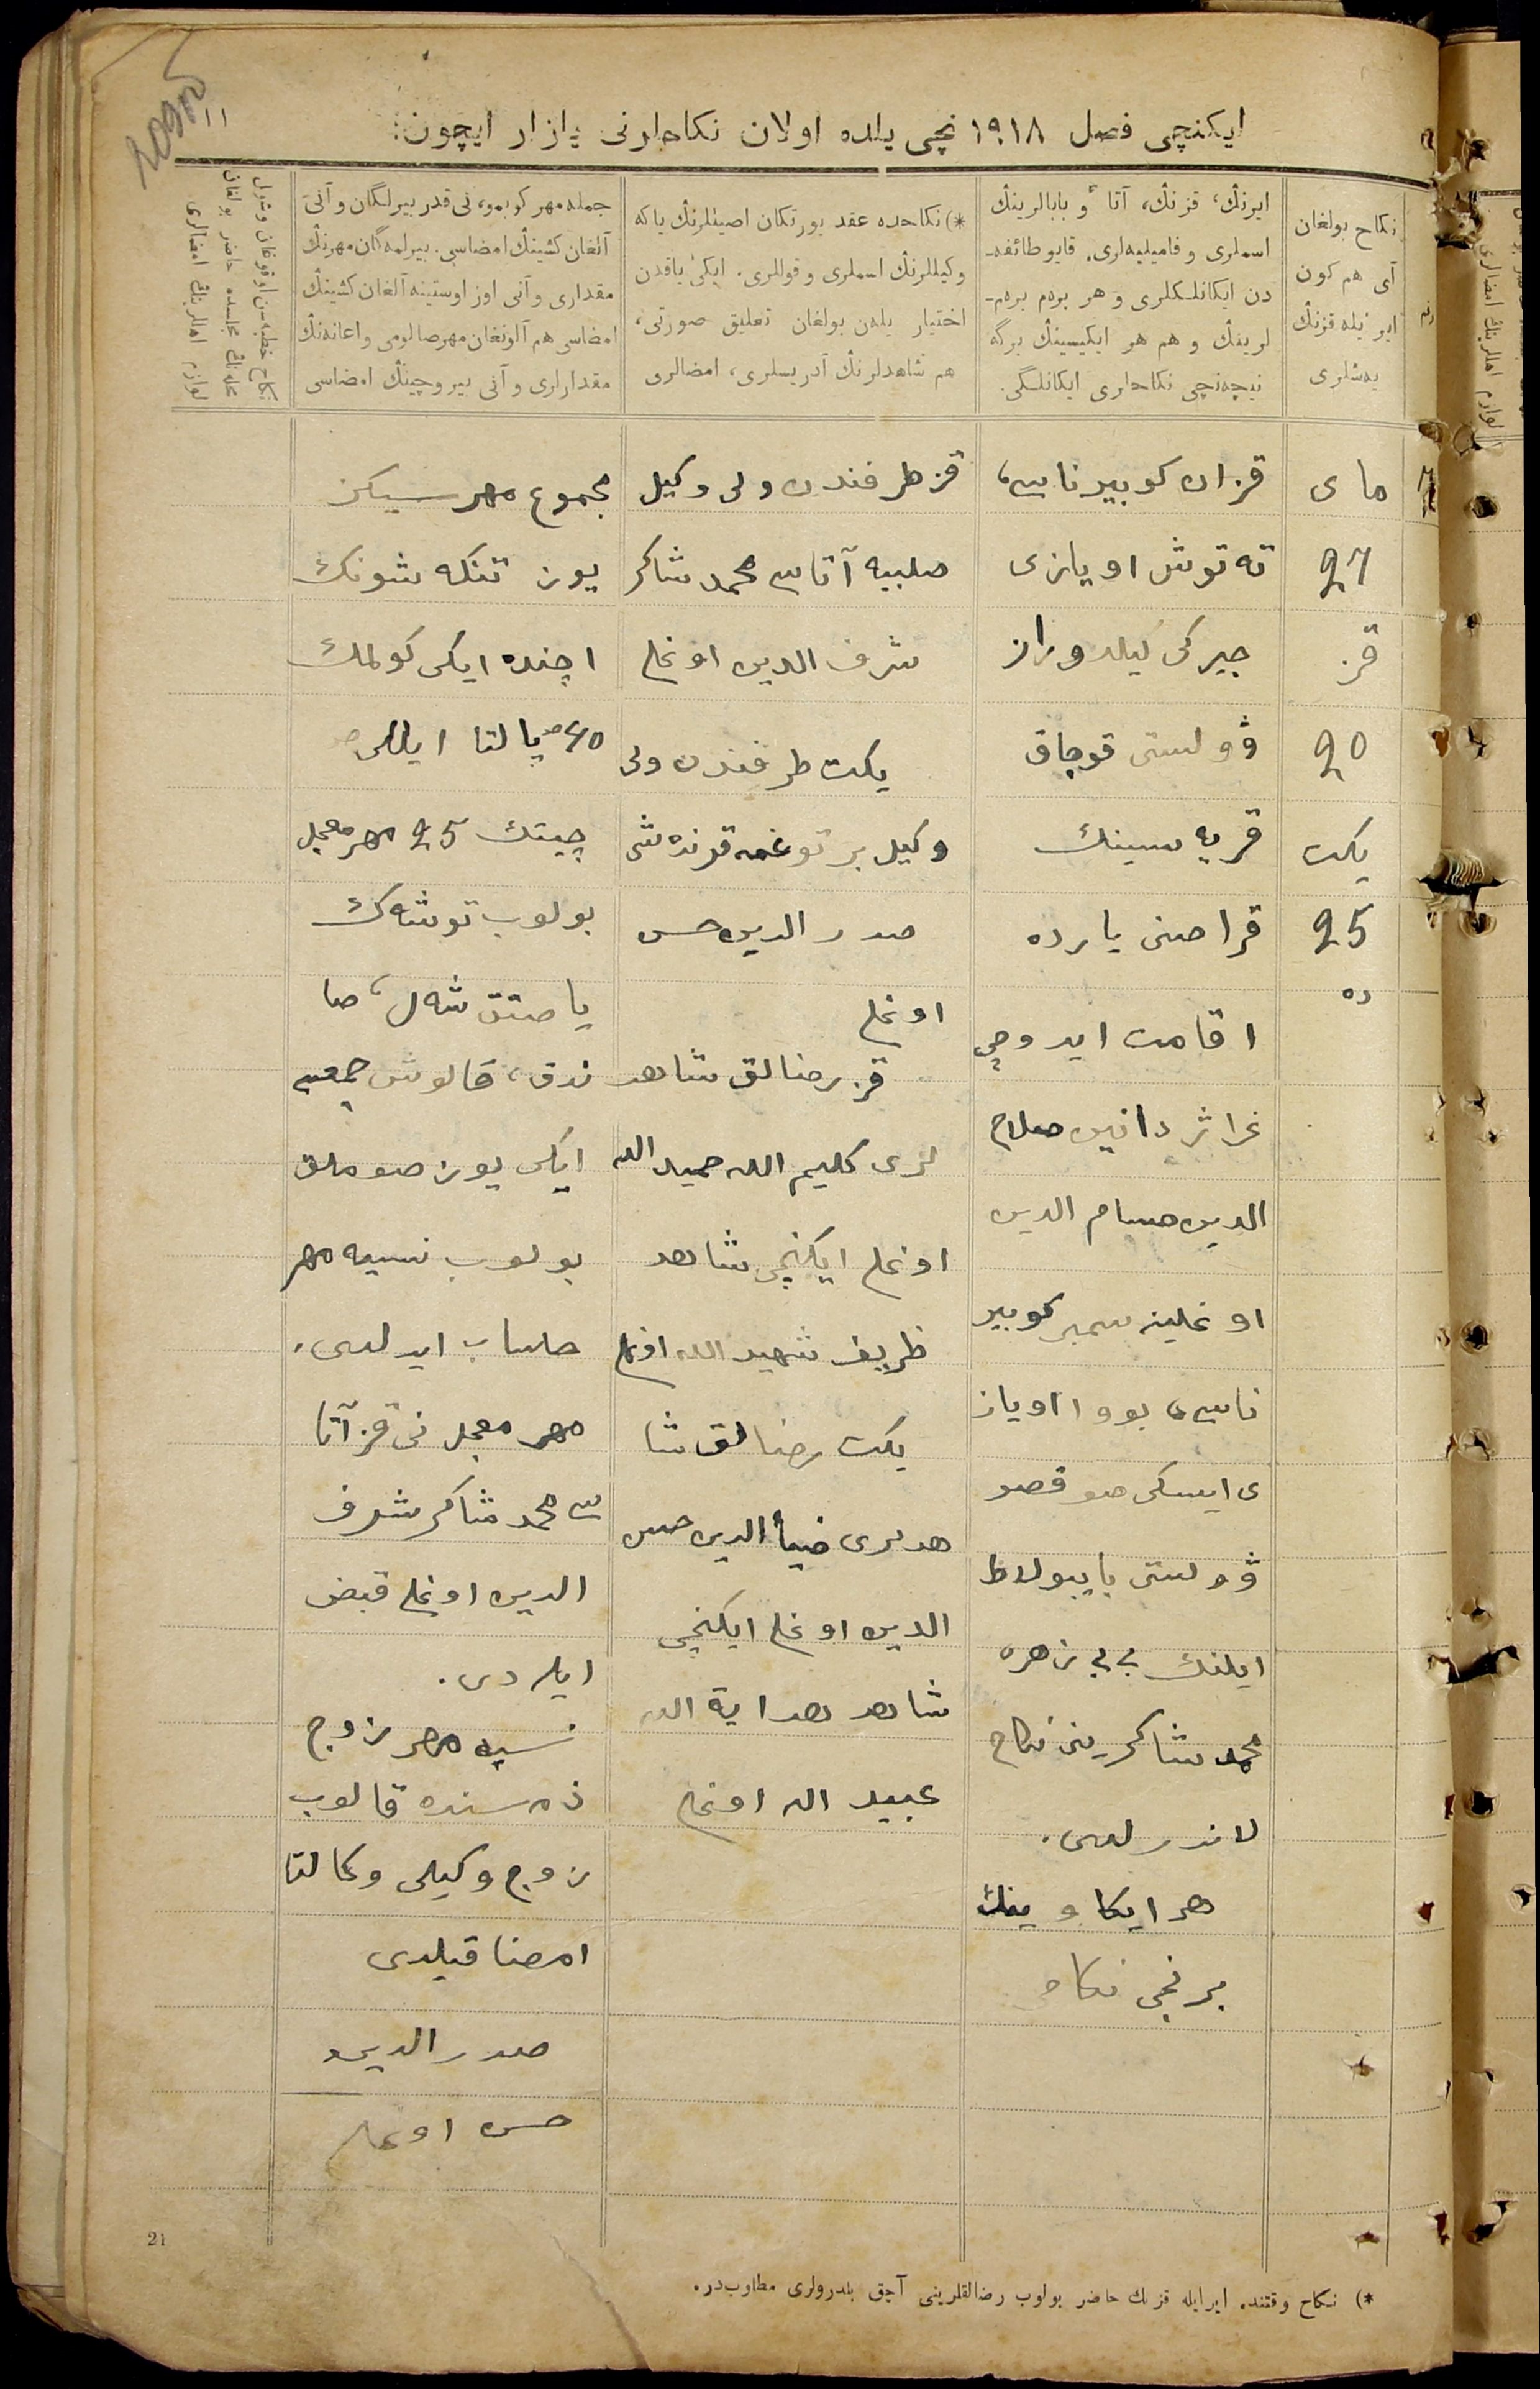 ایکنچی فصل ١٩١٨ نچی یلده اولان نکاحلرنی یازار ایچون:
١١
نکاح بولغان
آی هم کون
ایر ئیله قزنڭ
یەشلری
ایرنڭ، قزنڭ، آتا ٔو بابالرینڭ
اسملری و فامیلیەلری. قایو طائفه-
دن ایکانلكلری و هر برەم برەم-
لرینڭ و هم هر ایکیسینڭ برگه
نیچەنچی نکاحلری ایکانلگی.
*) نکاحده عقد یورتکان اصیللرنڭ یاکه
وکیللرنڭ اسملری و قوللری. ایکیٔ یاقدن
اختیار یلەن بولغان تعلیق صورتی،
هم شاهدلرنڭ آدریسلری، امضالری
جمله مهر کوبمو، نی قدر بیرلگان و آنی
آلغان کشینڭ امضاسی. بیرلمەگان مهرنڭ
مقداری و آنی اوز اوستینه آلغان کشینڭ
امضاسی هم آلونغان مهر صالومی و اعانەنڭ
مقدارلری و آنی بیروچینڭ امضاسی
نکاح خطبەسن اوقوغان و شول
مجلسده حاضر بولغان
لوازم اهللرینڭ امضالری
مای
27
قز
20
یکت
25
ده
قزان کوبیرناسی،
ته توش اویازی
جیرکی کیلدوراز
ڤولستی قوچاق
قریه سینڭ
قراصنی یارده
اقامت ایدوچی
غراژدانین صلاح
الدین حسام الدین
اوغلینه سمبر کوبیر
ناسی، بووا اویاز
ی ایسکی صوقصو
ڤولستی بایبولاط
ایلنڭ بی بی زهره
محمد شاکرینی نکاح
لاندرلدی.
هر ایکاوینڭ
برنچی نکاح
قز طرفندن ولی وکیل
صلبیه آتاسی محمد شاکر
شرف الدین اوغلی
یکت طرفندن ولی
وکیل بر توغمه قرنده شی
صدر الدین حسن
اوغلی
قز رضالق شاهد
لری کلیم الله حمید الله
اوغلی ایکنچی شاهد
ظریف شهید الله اوغلی
یکت رضالق شا
هدلری ضیأ الدین حسن
الدین اوغلی ایکنچی
شاهد هدایة الله
عبید الله اوغلی
مجموع مهر سیکز
یوز تنکه شونڭ
اچنده ایکی کولمك
پالتا
چیتك 25 مهر معجل
بولوب توشەك
یاصتق شەل، صا
ندق، قالوش جمعسی
ایکی یوز صوملق
بولوب نسیه مهر
حساب ایدلدی.
مهر معجل نی قز آتا
سی محمد شاکر شرف
الدین اوغلی قبض
ایلەدی.
نسیه مهر زوج
ذمه سنده قالوب
زوج وکیلی وکالتا
امضا قیلدی
صدر الدین
حسن اوغلی
21
*) نکاح وقتنده ایر ایله قزنڭ حاضر بولوب رضالقلرینی آچق بلدرولری مطلوب در.